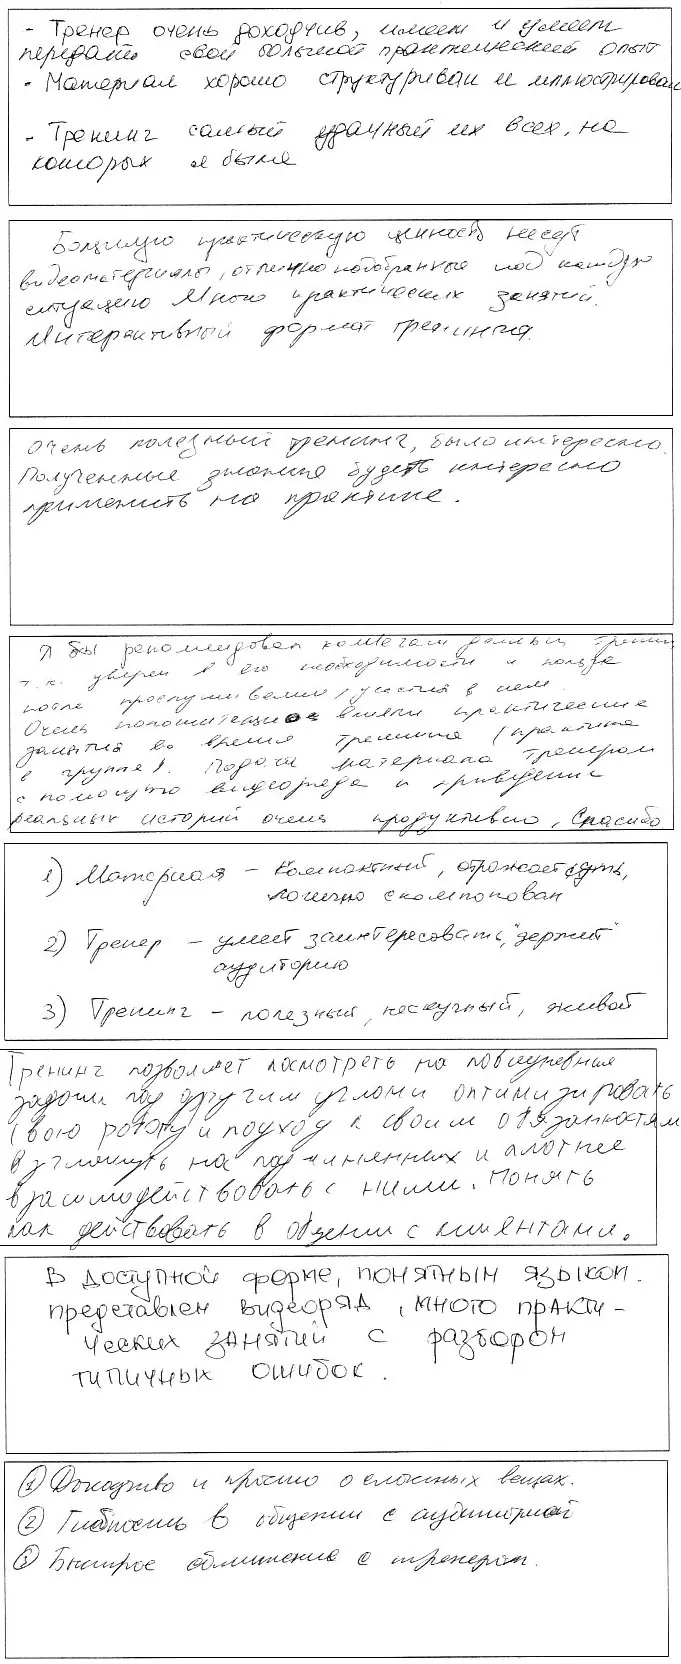 - Тренер очень доходчив, имеет и умеет
передать свой большой практический опыт
- Материал хорошо структурирован и иллюстрирован
- Тренинг самый удачный из всех, на
которых я была
Большую практическую ценность несут
видеоматериалы, отлично подобранные под каждую
ситуацию Много практических занятий.
Интерактивный формат тренинга.
Очень полезный тренинг, было интересно.
Полученные знания будет интересно
применить на практике.
Я бы рекомендовал коллегам данный тренинг
т.к. уверен в его необходимости и пользе
после прослушивания/участия в нем.
Очень положительно влияли практические
занятия во время тренинга (практика
в группе). Подача материала тренером
с помощью видеоряда и приведении
реальных историй очень продуктивно, Спасибо
1) Материал - компактный, отражает суть,
логично скомпонован
2) Тренер - умеет заинтересовать, "держит"
аудиторию
3) Тренинг - полезный, нескучный, живой
Тренинг позволяет посмотреть на повседневные
задачи под другим углом и оптимизировать
свою работу и подход к своим обязанностям
взглянуть на подчиненных и плотнее
взаимодействовать с ними. Понять
как действовать в общении с клиентами.
В доступной форме, понятным языком.
представлен видеоряд, много практи-
ческих занятий с разбором
типичных ошибок.
① Доходчиво и просто о сложных вещах.
② Гибкость в общении с аудиторией
③ Быстрое сближение с тренером.